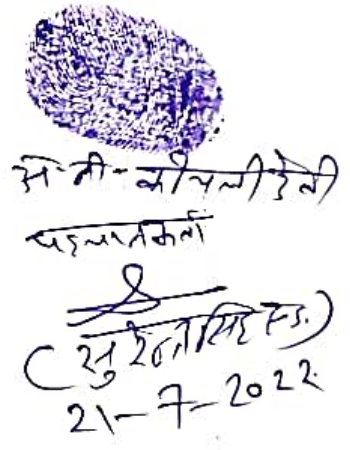 अं.नी - कोयली देवी
पहचानकर्ता
(सुरेन्द्र सिंह एड.)
21-7-2022